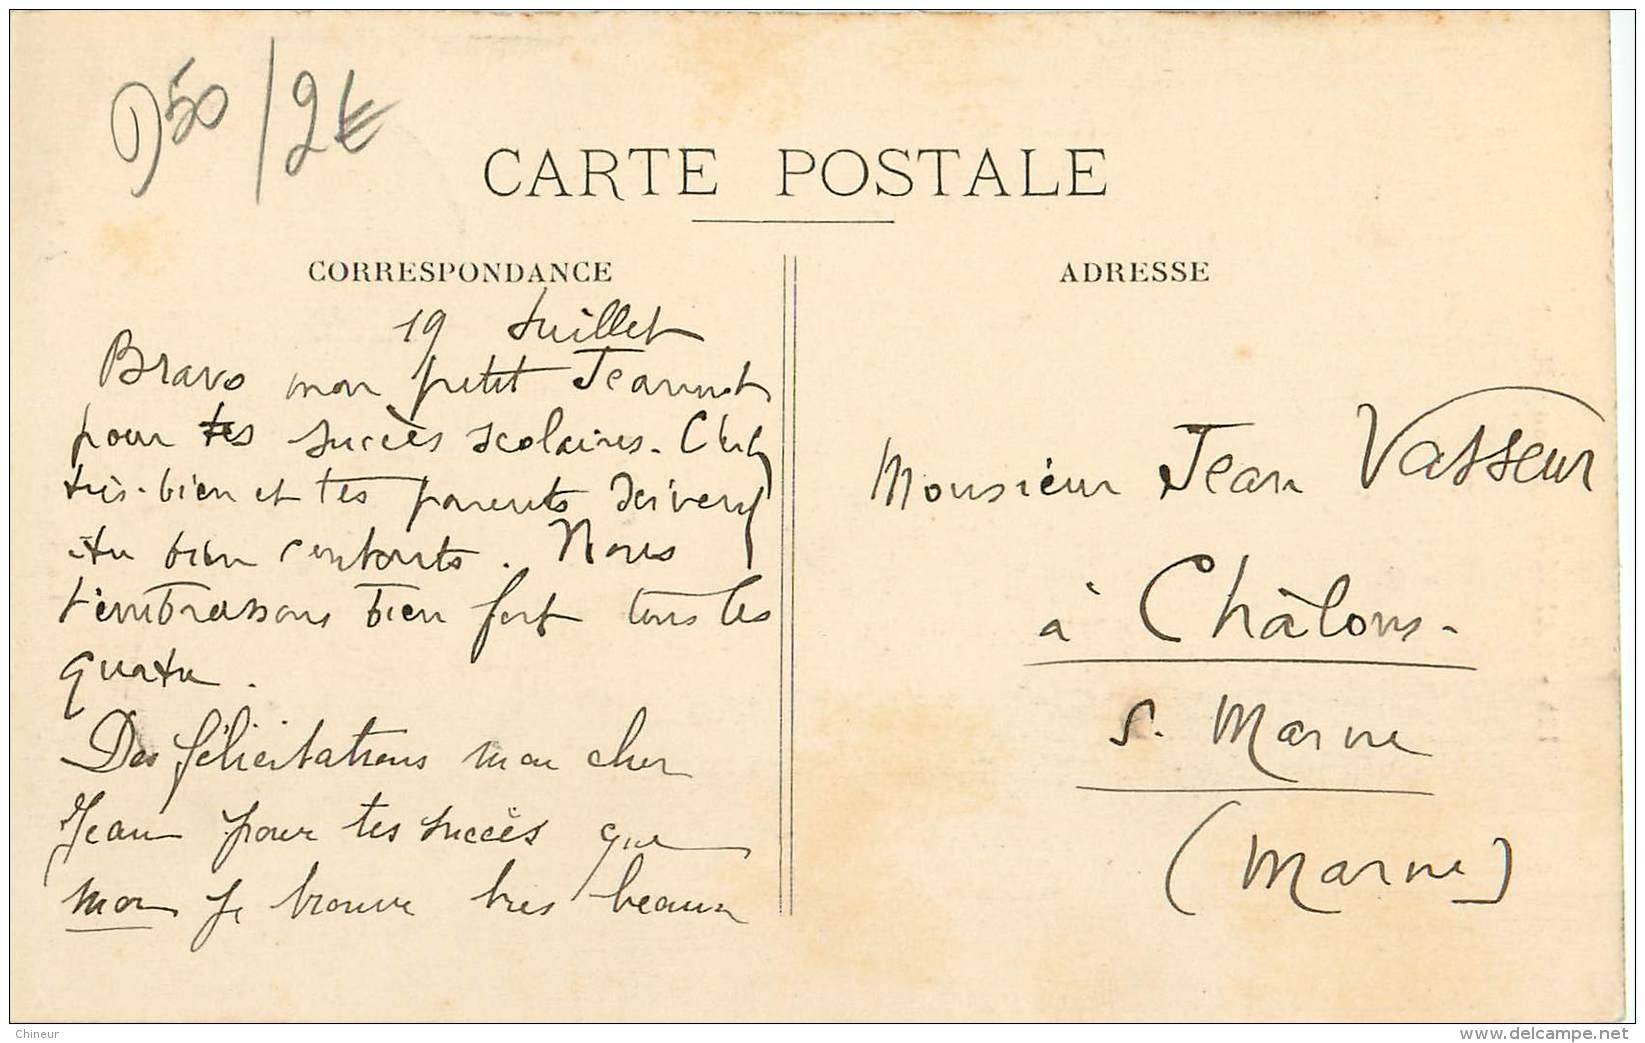 D50/2€
CARTE POSTALE
CORRESPONDANCE
19 Juillet
Bravo mon petit Jeannot
pour tes succès scolaires. C'est
très-bien et tes parents doivent
être bien contents. Nous
t'embrassons bien fort tous les
quatre.
Des félicitations mon cher
Jean pour tes succès que
moi je trouve très beaux
ADRESSE
Monsieur Jean Vasseur
à Châlons-
s. Marne
(Marne)
Chineur
www.delcampe.net